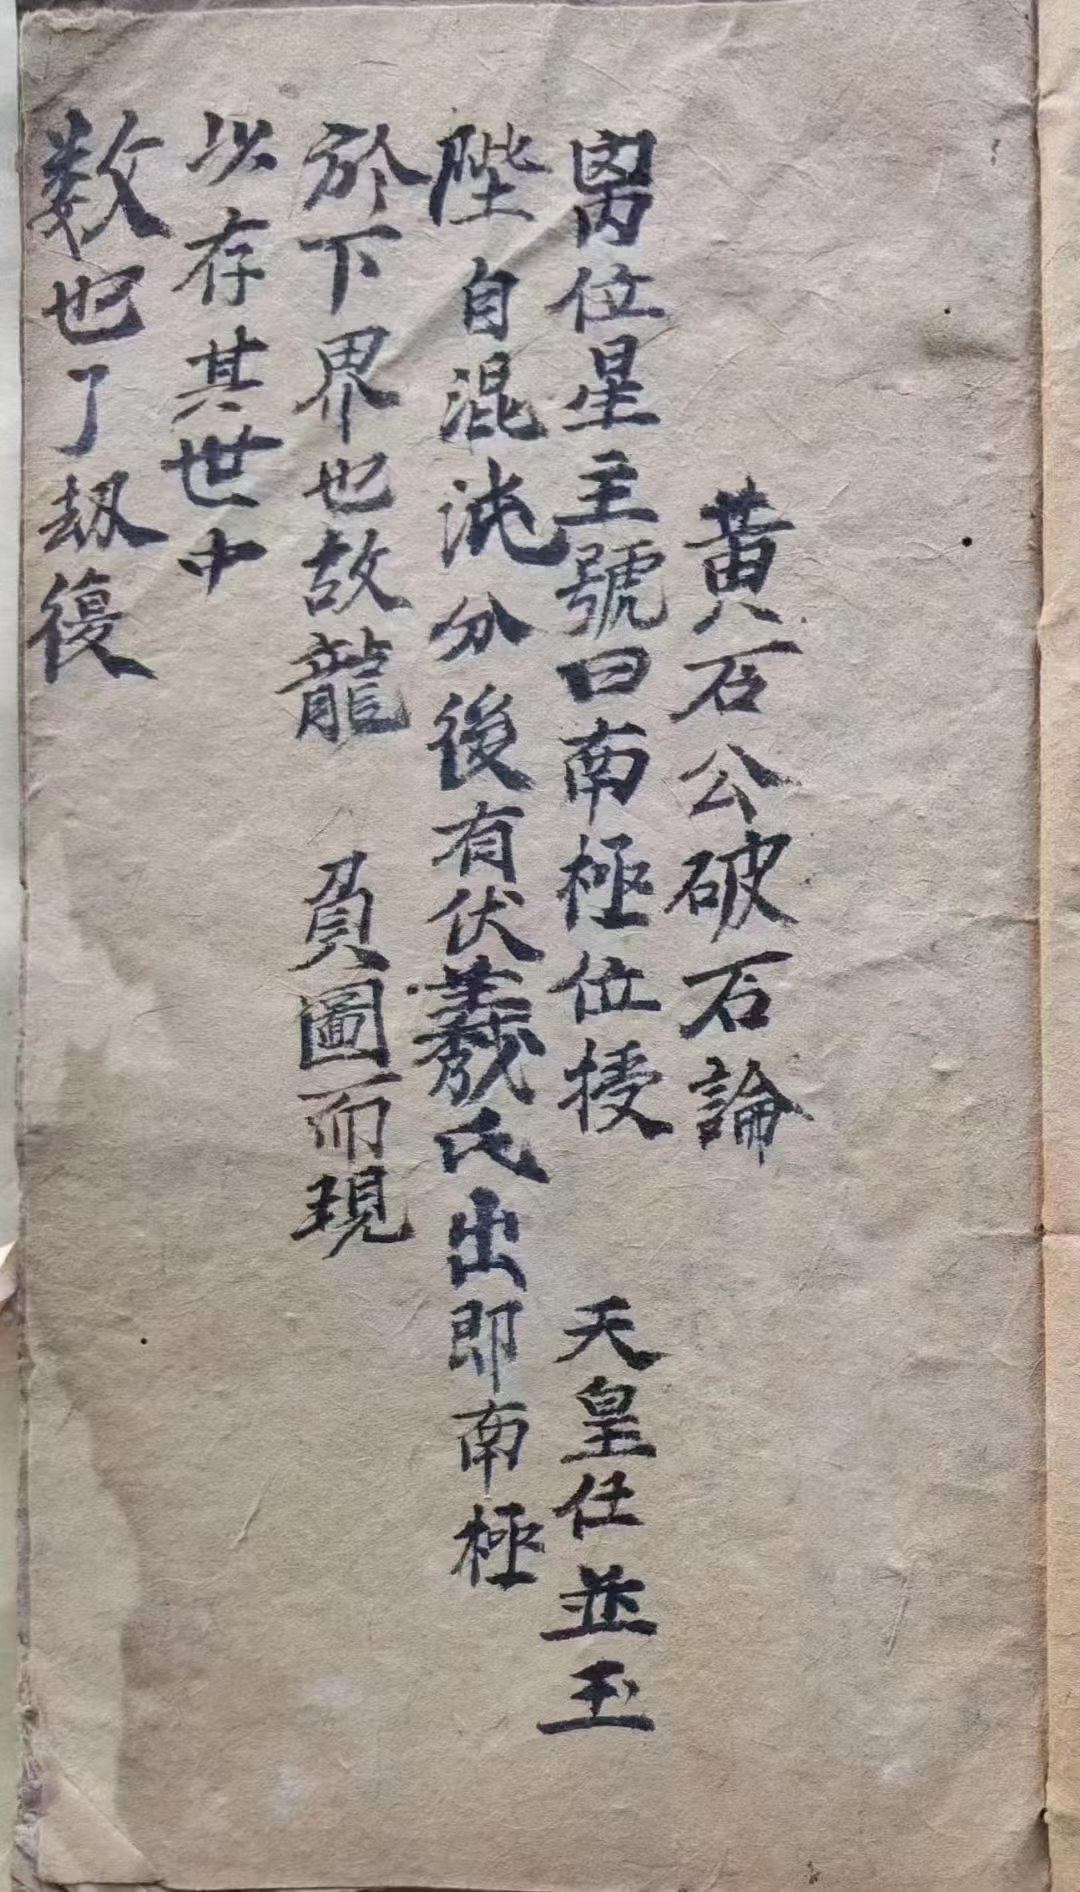 黃石公破石論
离位星主號曰南極位授 天皇任並玉
陛 自混沌分後有伏羲氏出即南極
於下界也故龍 負圖而現
以存其世中
数也了劫復